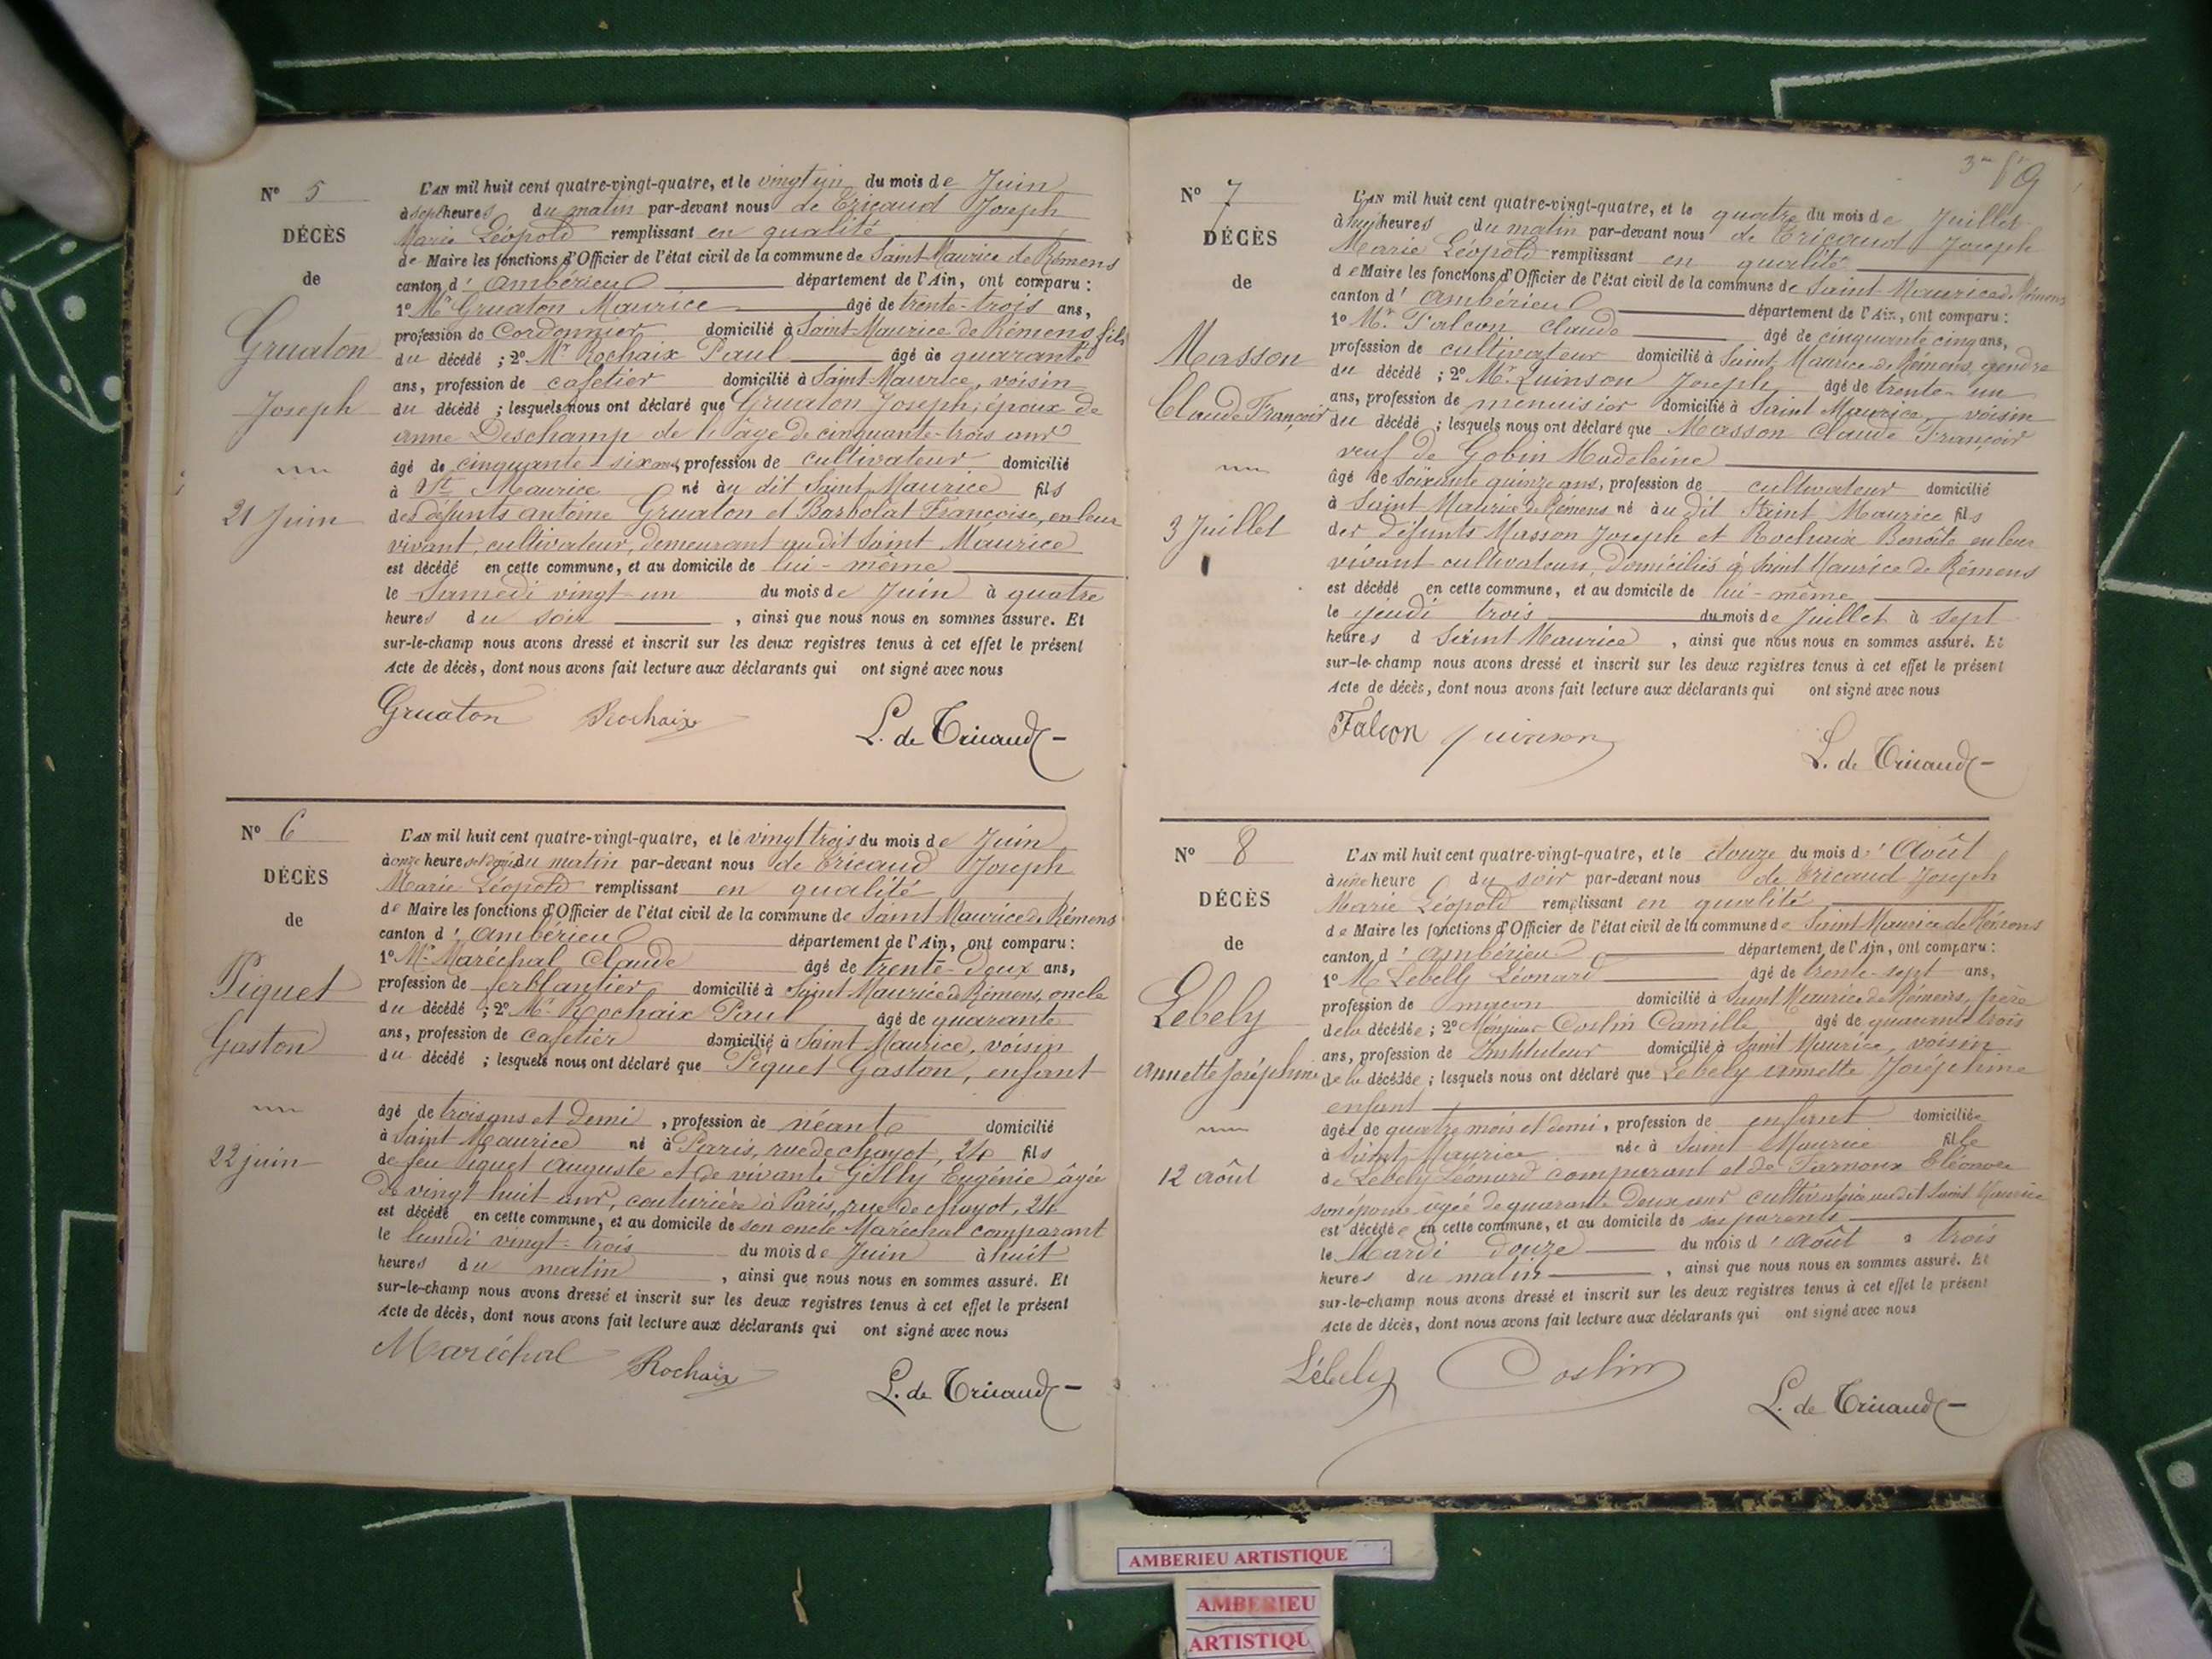 N° 5
DÉCÈS
de
Gruaton
Joseph
21 Juin
L'AN mil huit cent quatre-vingt-quatre, et le vingt un du mois de Juin
à sept heures du matin par-devant nous de Tricaud Joseph
Marie Léopold remplissant en qualité
de Maire les fonctions d'Officier de l'état civil de la commune de Saint-Maurice de Rémens
canton d'Ambérieu département de l'Ain, ont comparu :
1° Mr Gruaton Maurice âgé de trente-trois ans,
profession de Cordonnier domicilié à Saint-Maurice de Rémens, fils
du décédé ; 2° Mr Rochaix Paul âgé de quarante
ans, profession de cafetier domicilié à Saint-Maurice, voisin
du décédé ; lesquels nous ont déclaré que Gruaton Joseph, époux de
anne Deschamp de l'âge de cinquante-trois ans
âgé de cinquante-six ans, profession de cultivateur domicilié
à St Maurice né au dit Saint Maurice fils
des défunts antoine Gruaton et Barbolat Françoise, en leur
vivant, cultivateur, demeurant au dit Saint Maurice
est décédé en cette commune, et au domicile de lui-même
le Samedi vingt-un du mois de Juin à quatre
heures du soir , ainsi que nous nous en sommes assuré. Et
sur-le-champ nous avons dressé et inscrit sur les deux registres tenus à cet effet le présent
Acte de décès, dont nous avons fait lecture aux déclarants qui ont signé avec nous
Gruaton Rochaix L. de Tricaud
N° 6
DÉCÈS
de
Piquet
Gaston
22 juin
L'AN mil huit cent quatre-vingt-quatre, et le vingt trois du mois de Juin
à onze heures et demi du matin par-devant nous de Tricaud Joseph
Marie Léopold remplissant en qualité
de Maire les fonctions d'Officier de l'état civil de la commune de Saint Maurice de Rémens
canton d'Ambérieu département de l'Ain, ont comparu :
1° Mr Maréchal Claude âgé de trente-deux ans,
profession de ferblantier domicilié à Saint Maurice de Rémens, oncle
du décédé ; 2° Mr Rochaix Paul âgé de quarante
ans, profession de cafetier domicilié à Saint Maurice, voisin
du décédé ; lesquels nous ont déclaré que Piquet Gaston, enfant
âgé de trois ans et demi , profession de néant domicilié
à Saint Maurice né à Paris, rue de chayot, 24 fils
de feu Piquet Auguste et de vivante Gilly Eugénie âgée
de vingt huit ans, couturière à Paris, rue de chayot, 24
est décédé en cette commune, et au domicile de son oncle Maréchal comparant
le lundi vingt-trois du mois de Juin à huit
heures du matin , ainsi que nous nous en sommes assuré. Et
sur-le-champ nous avons dressé et inscrit sur les deux registres tenus à cet effet le présent
Acte de décès, dont nous avons fait lecture aux déclarants qui ont signé avec nous
Maréchal Rochaix L. de Tricaud
N° 7
DÉCÈS
de
Masson
Claude François
3 Juillet
L'AN mil huit cent quatre-vingt-quatre, et le quatre du mois de Juillet
à huit heures du matin par-devant nous de Tricaud Joseph
Marie Léopold remplissant en qualité
de Maire les fonctions d'Officier de l'état civil de la commune de Saint-Maurice de Rémens
canton d'Ambérieu département de l'Ain, ont comparu :
1° Mr Falcon Claude âgé de cinquante cinq ans,
profession de cultivateur domicilié à Saint Maurice de Rémens, gendre
du décédé ; 2° Mr Quinson Joseph âgé de trente-un
ans, profession de menuisier domicilié à Saint Maurice, voisin
du décédé ; lesquels nous ont déclaré que Masson Claude François
veuf de Gobin Madeleine
âgé de soixante quinze ans, profession de cultivateur domicilié
à Saint Maurice de Rémens né au dit Saint Maurice fils
des défunts Masson Joseph et Rochaix Benoîte en leur
vivant cultivateurs, domiciliés à Saint Maurice de Rémens
est décédé en cette commune, et au domicile de lui-même
le jeudi trois du mois de Juillet à sept
heures d Saint Maurice , ainsi que nous nous en sommes assuré. Et
sur-le-champ nous avons dressé et inscrit sur les deux registres tenus à cet effet le présent
Acte de décès, dont nous avons fait lecture aux déclarants qui ont signé avec nous
Falcon Quinson L. de Tricaud
N° 8
DÉCÈS
de
Lebely
Annette Joséphine
12 août
L'AN mil huit cent quatre-vingt-quatre, et le douze du mois d'Août
à une heure du soir par-devant nous de Tricaud Joseph
Marie Léopold remplissant en qualité
de Maire les fonctions d'Officier de l'état civil de la commune de Saint Maurice de Rémens
canton d'Ambérieu département de l'Ain, ont comparu :
1° M Lebelly Léonard âgé de trente-sept ans,
profession de maçon domicilié à Saint Maurice de Rémens, père
de la décédée ; 2° Monsieur Coslin Camille âgé de quarante trois
ans, profession de Instituteur domicilié à Saint Maurice, voisin
de la décédée ; lesquels nous ont déclaré que Lebely Annette Joséphine
enfant
âgée de quatre mois et demi, profession de enfant domiciliée
à Saint Maurice née à Saint Maurice fille
de Lebely Léonard comparant et de Farnoux Eléonore
son épouse âgée de quarante deux ans cultivatrice au dit Saint Maurice
est décédée en cette commune, et au domicile de ses parents
le Mardi douze du mois d'Août à trois
heures du matin , ainsi que nous nous en sommes assuré. Et
sur-le-champ nous avons dressé et inscrit sur les deux registres tenus à cet effet le présent
Acte de décès, dont nous avons fait lecture aux déclarants qui ont signé avec nous
Lébely Coslin L. de Tricaud
AMBERIEU ARTISTIQUE
AMBERIEU
ARTISTIQU